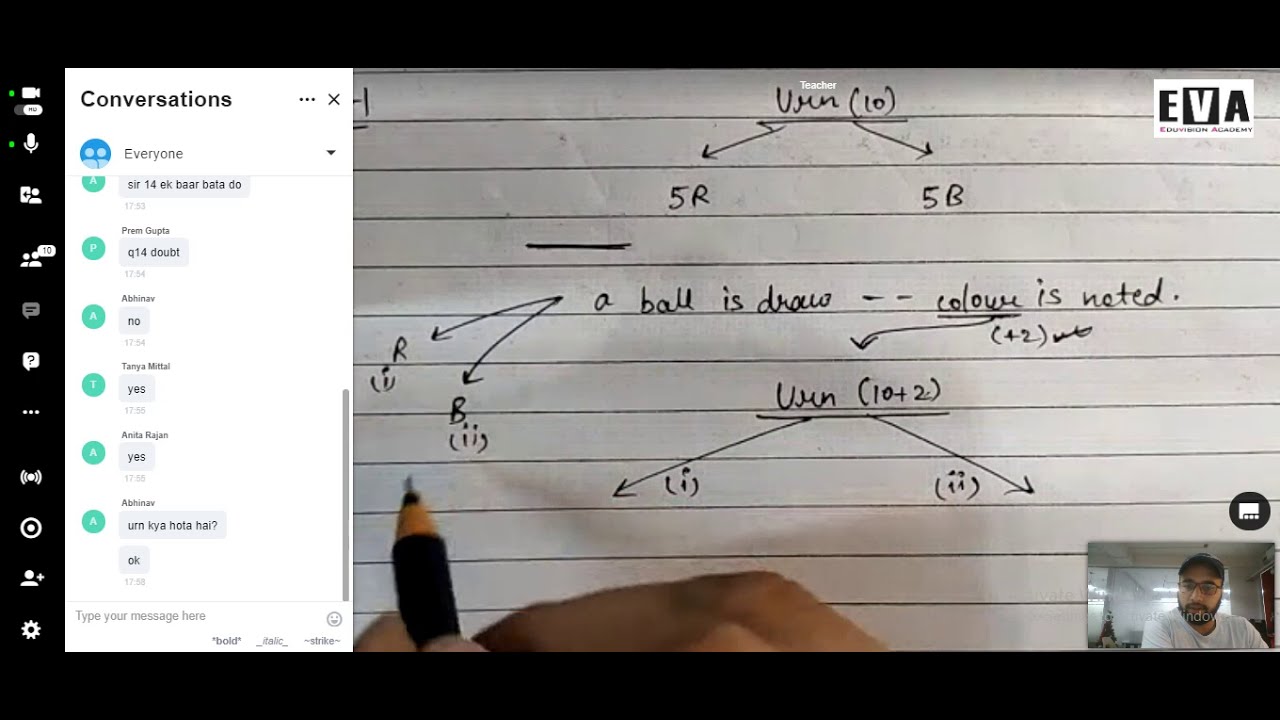 Conversations
Everyone
A
sir 14 ek baar bata do
17:53
Prem Gupta
P
q14 doubt
17:54
Abhinav
A
no
17:54
Tanya Mittal
T
yes
17:55
Anita Rajan
A
yes
17:55
Abhinav
A
urn kya hota hai?
ok
17:58
Type your message here
*bold* _italic_ ~strike~
HU
10
Teacher
EVA
EDUVISION ACADEMY
-1
Urn (10)
5R 5B
a ball is draw -- colour is noted.
(+2)
R
(i)
B
(ii)
Urn (10+2)
(i) (ii)